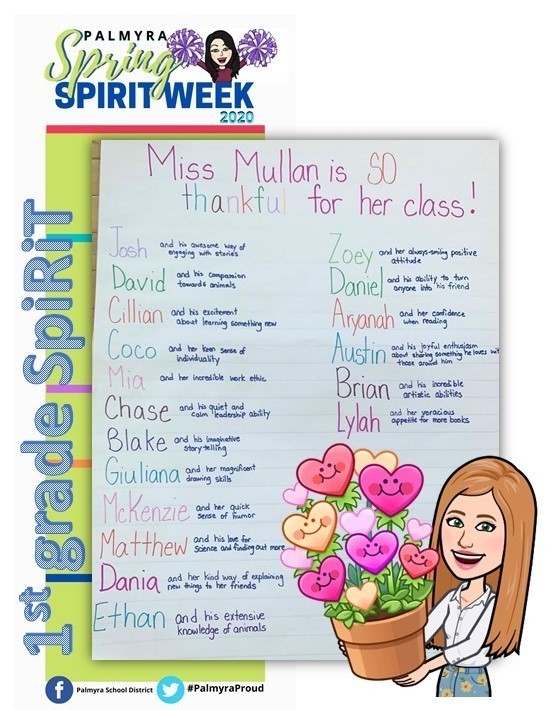 PALMYRA
Spring
SPIRIT WEEK
2020
1st grade SpiRiT
Miss Mullan is SO
thankful for her class!
Josh and his awesome way of
engaging with stories
David and his compassion
towards animals
Cillian and his excitement
about learning something new
Coco and her keen sense of
individuality
Mia and her incredible work ethic
Chase and his quiet and
calm leadership ability
Blake and his imaginative
story-telling
Giuliana and her magnificent
drawing skills
McKenzie and her quick
sense of humor
Matthew and his love for
science and finding out more
Dania and her kind way of explaining
new things to her friends
Ethan and his extensive
knowledge of animals
Zoey and her always-smiling positive
attitude
Daniel and his ability to turn
anyone into his friend
Aryanah and her confidence
when reading
Austin and his joyful enthusiasm
about sharing something he loves with
those around him
Brian and his incredible
artistic abilities
Lylah and her voracious
appetite for more books
Palmyra School District
#PalmyraProud